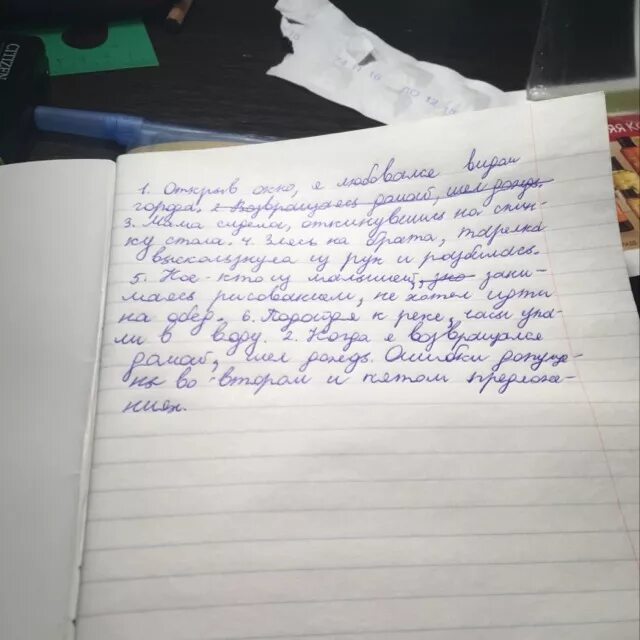 CITIZEN
1. Открыв окно, я любовался видом
города. 2. Возвращаясь домой, шел дождь.
3. Мама сидела, откинувшись на спин-
ку стула. 4. Злясь на брата, тарелка
выскользнула из рук и разбилась.
5. Кое-кто из малышей, зано зани-
маясь рисованием, не хотел идти
на обед. 6. Подойдя к реке, часы упа-
ли в воду. 2. Когда я возвращался
домой, шел дождь. Ошибки допуще-
ны во втором и пятом предложе-
ниях.